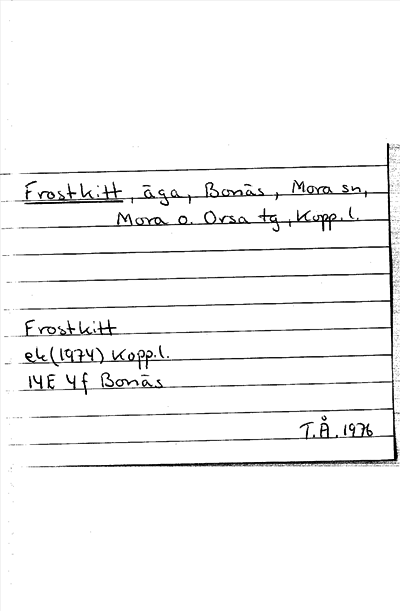 Frostkitt, äga, Bonäs, Mora sn,
Mora o. Orsa tg, Kopp.l.
Frostkitt
ek(1974) Kopp.l.
14E 4f Bonäs
T.Å. 1976